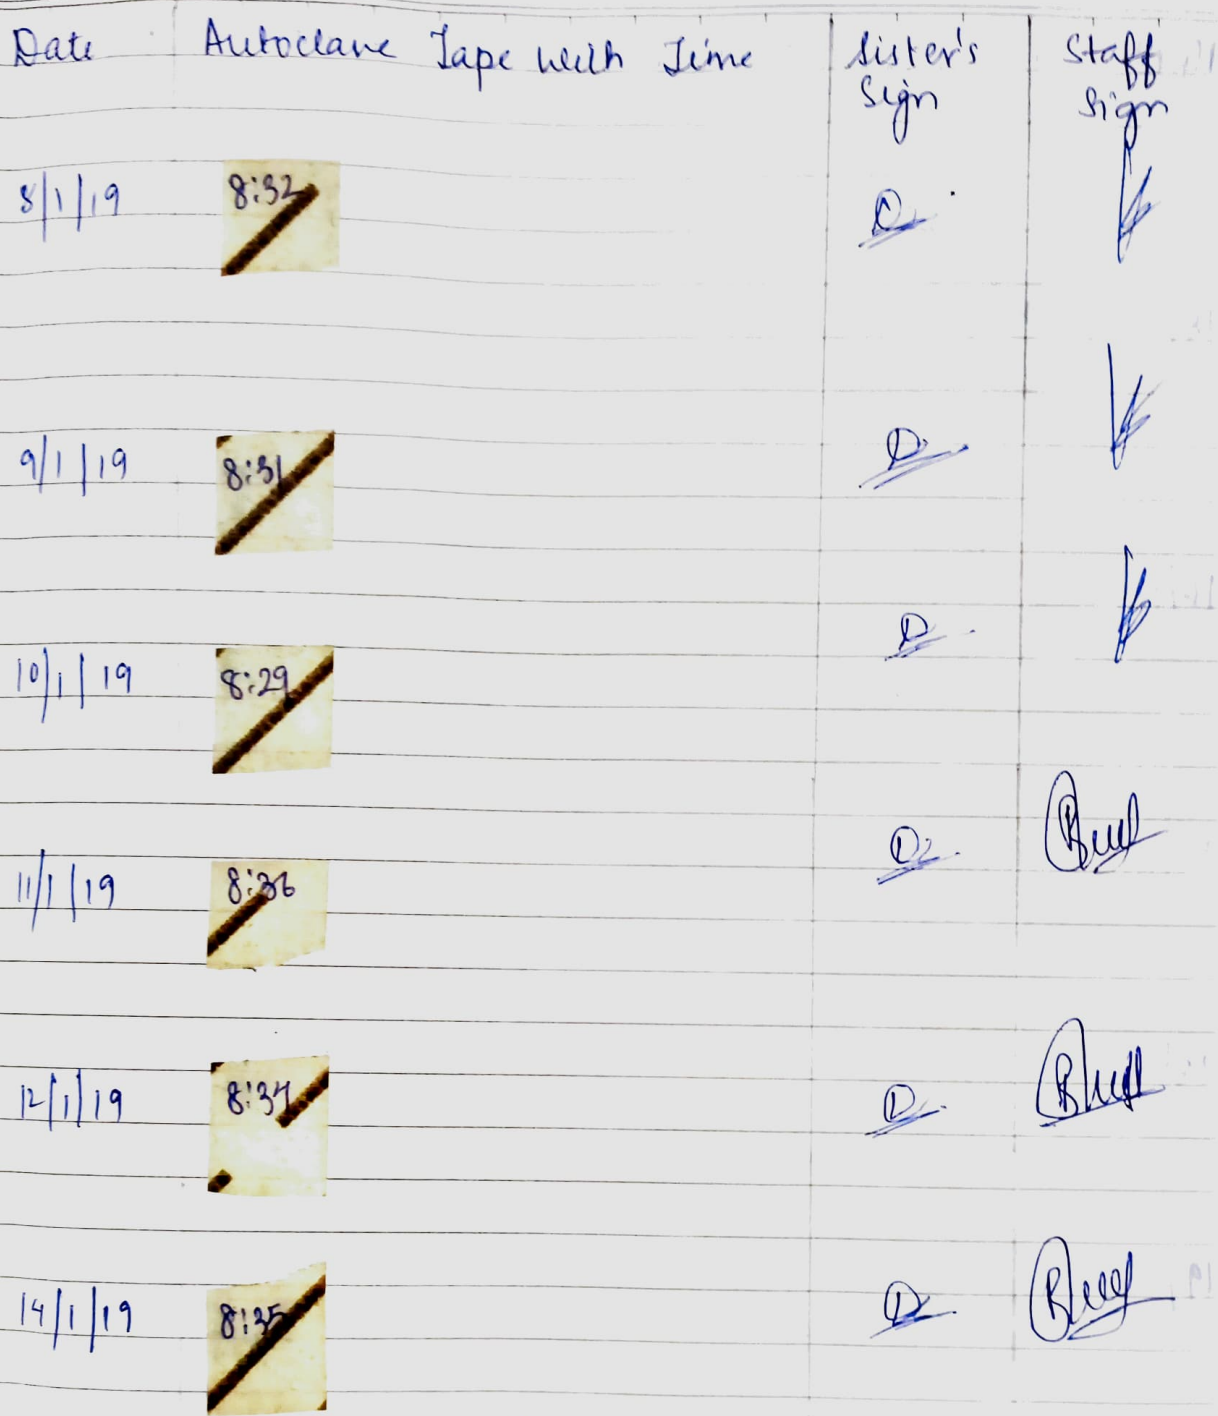 Date Autoclave Tape with Time Sister's Sign Staff Sign
8/1/19 8:32
9/1/19 8:31
10/1/19 8:29
11/1/19 8:36
12/1/19 8:37
14/1/19 8:35